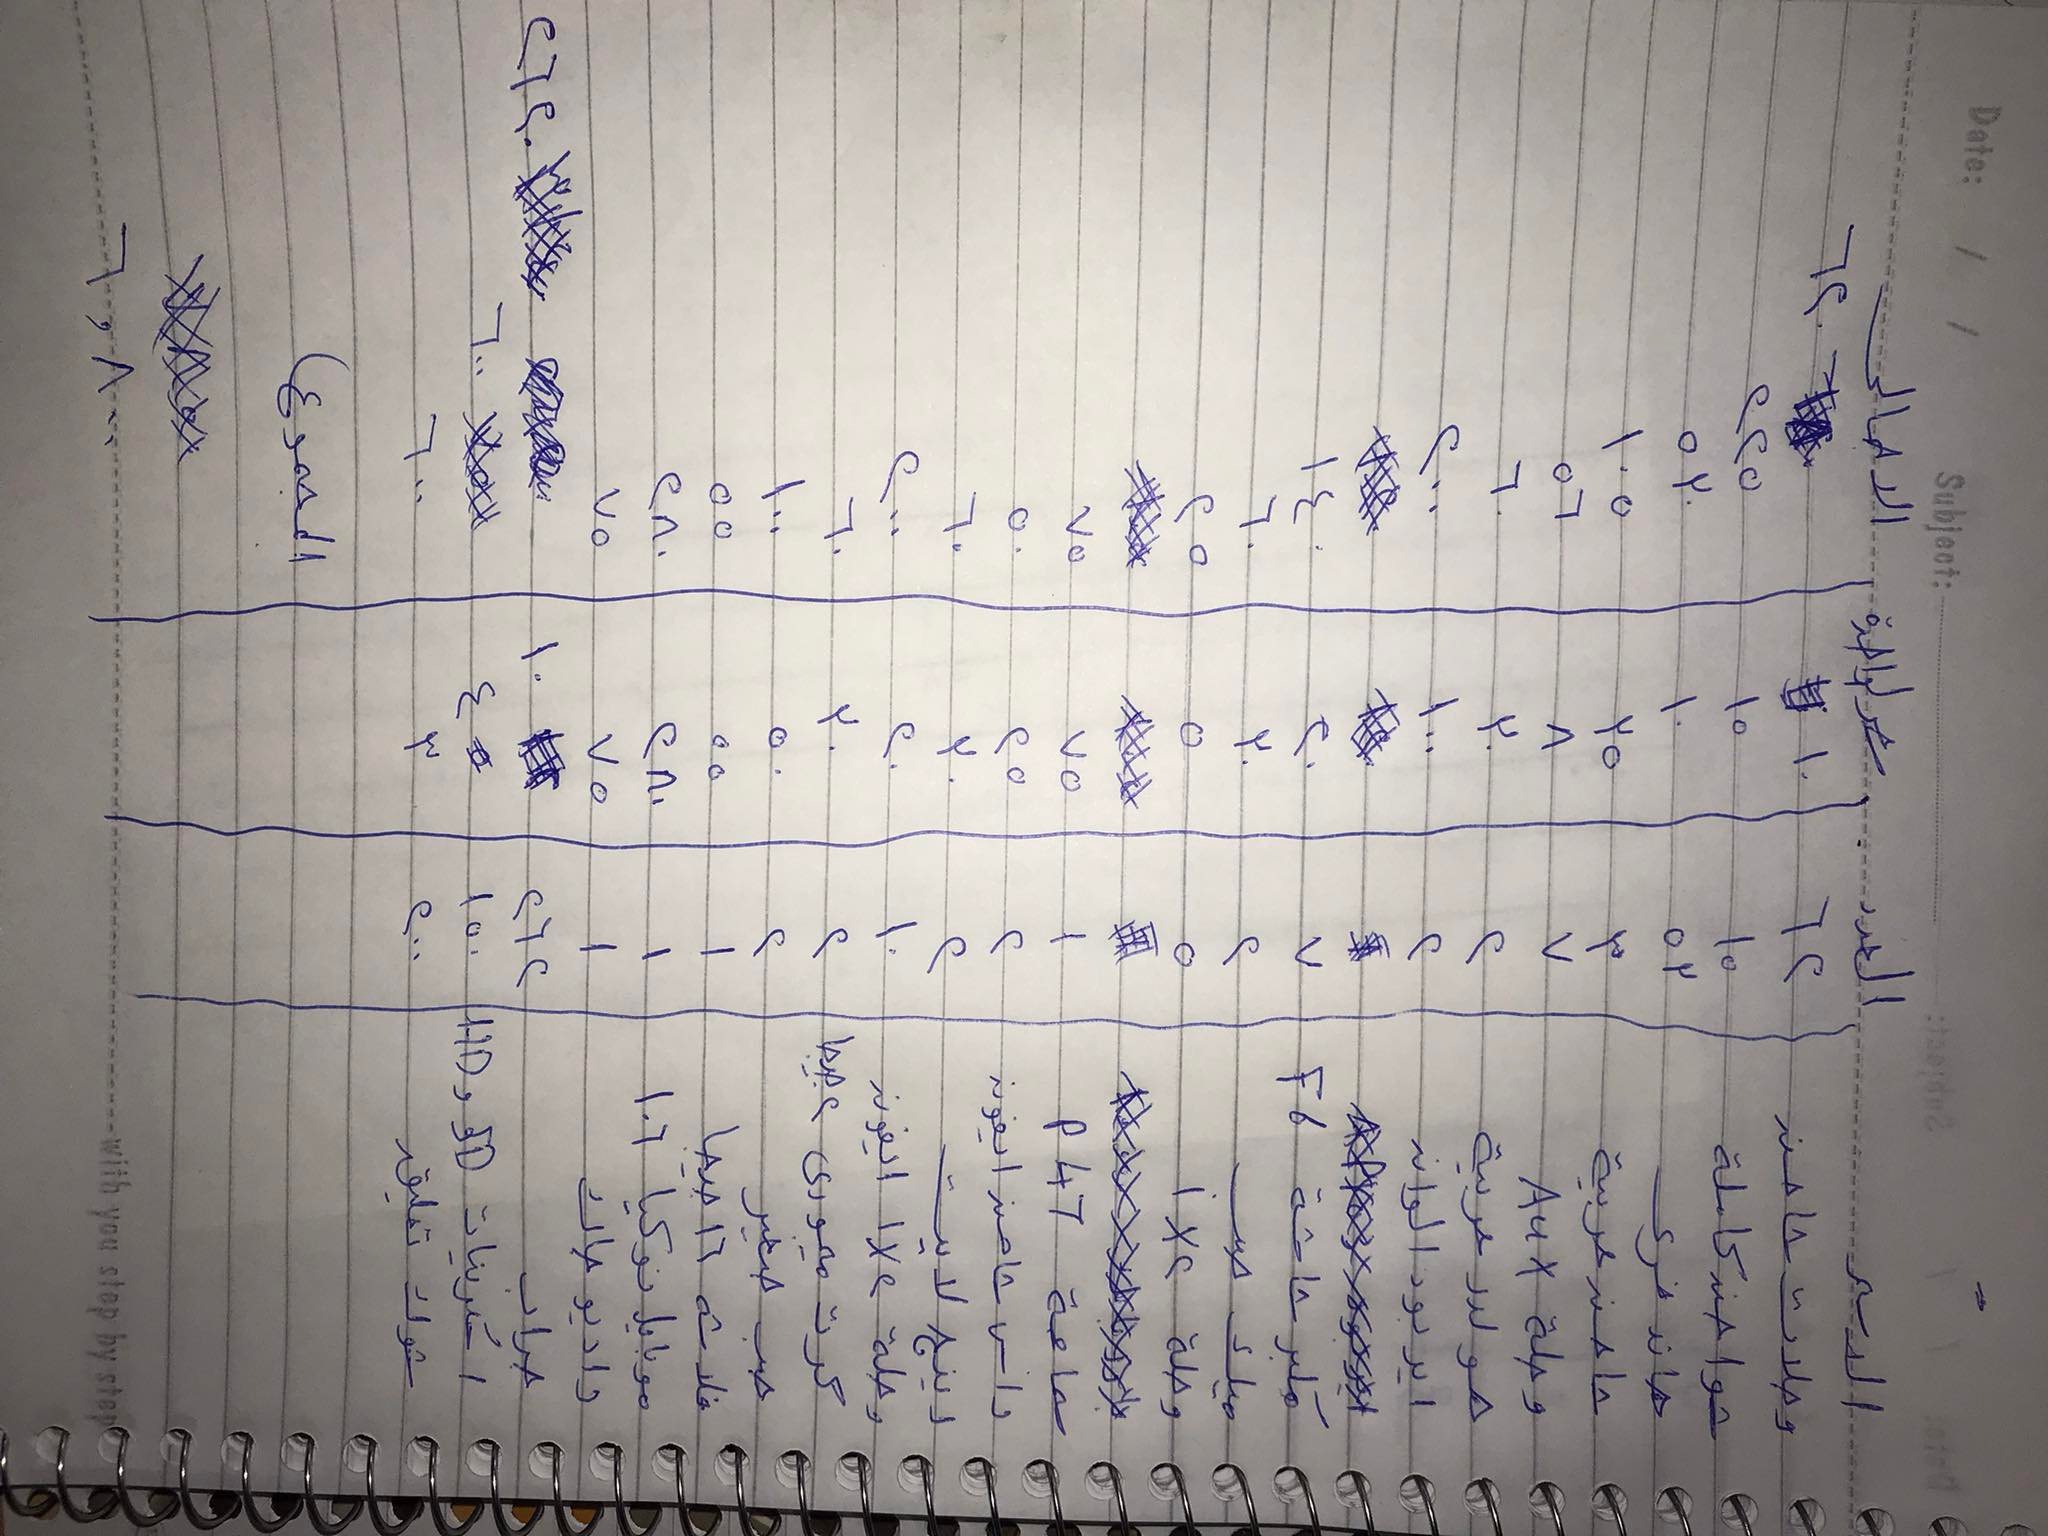 Date: / / Subject:
الاسم العدد سعر الواحدة الاجمالى
وصلات شاحن ٦٢ ١٠ ٦٢٠
شواحن كاملة ١٥ ١٥ ٢٢٥
هاند فرى ٥٢ ١٠ ٥٢٠
شاحن عربية ٣ ٣٥ ١٠٥
وصلة AUX ٧ ٨ ٥٦
هولدر عربية ٢ ٣٠ ٦٠
ايربود الوان ٢ ١٠٠ ٢٠٠
مكبر شاشة F6 ٧ ٢٠ ١٤٠
ميك صب ٢ ٣٠ ٦٠
وصلة ١X٢ ٥ ٥ ٢٥
سماعة P47 ١ ٧٥ ٧٥
راس شاحن ايفون ٢ ٢٥ ٥٠
رينج لايت ٢ ٣٠ ٦٠
وصلة ١X٢ ايفون ١٠ ٢٠ ٢٠٠
كرت ميمورى ٢ جيجا ٢ ٣٠ ٦٠
صب صغير ٢ ٥٠ ١٠٠
فلاشه ١٦ جيجا ١ ٥٥ ٥٥
موبايل نوكيا ١٠٦ ١ ٢٨٠ ٢٨٠
راديو جاك ١ ٧٥ ٧٥
جراب ٢٦٢ ١٠ ٢٦٢٠
اسكرينات 5D و HD ١٥٠ ٤ ٦٠٠
شوك تعليق ٢٠٠ ٣ ٦٠٠
المجموع)
٦,٨٠٠
with you step by step